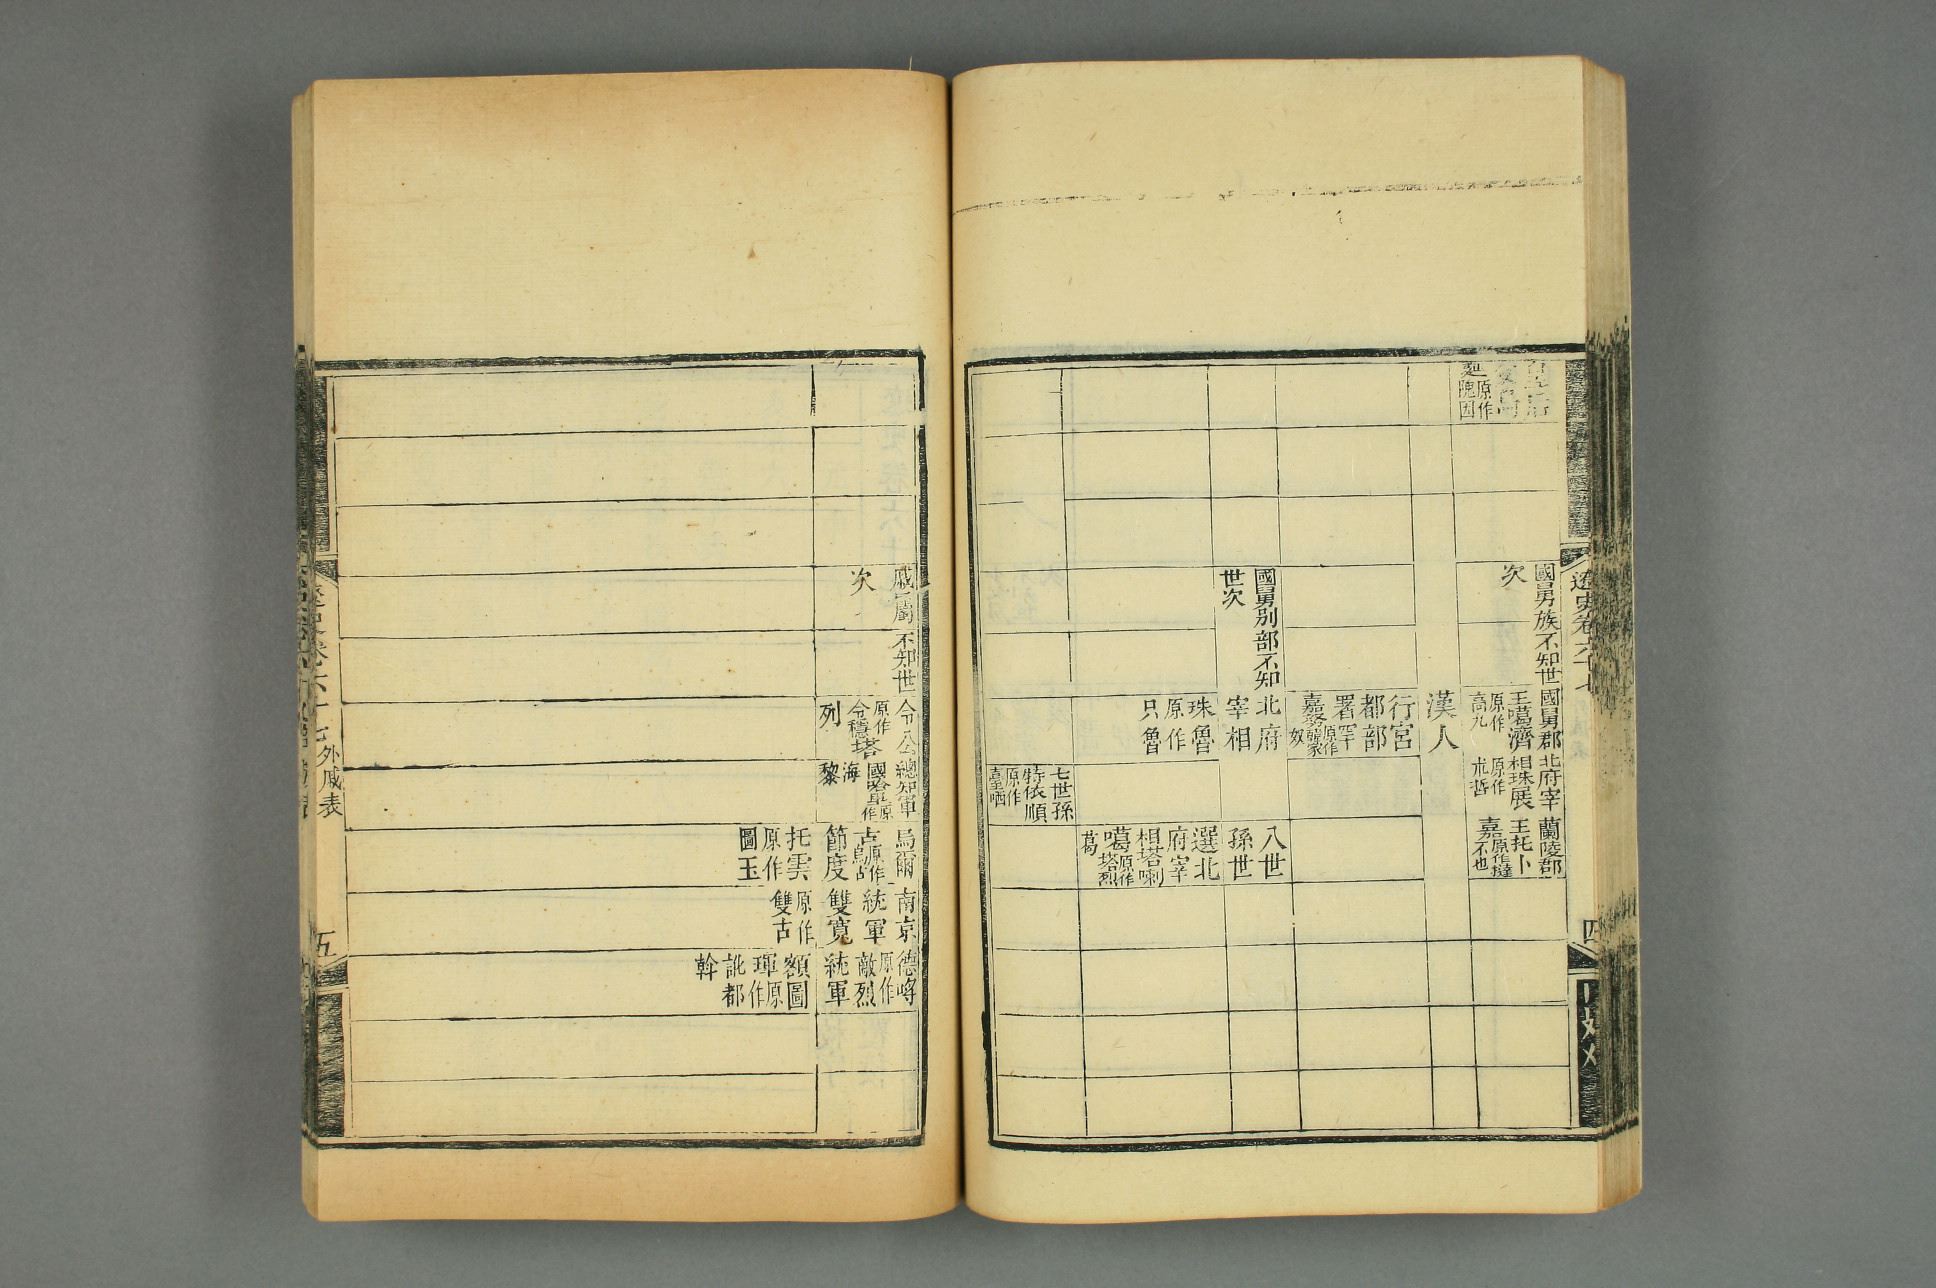 原作
隗因
國舅族不知世
次
國舅郡
王噶濟
原作
高九
北府宰
相珠展
原作
朮哲
蘭陵郡
王托卜
嘉原作撻
不也
漢人
行宮
都部
署罕
嘉努原作
韓家
奴
國舅別部不知
世次
北府
宰相
珠魯
原作
只魯
八世
孫世
選北
府宰
相塔喇
噶原作
塔烈
葛
七世孫
特依順
原作
臺哂
遼史卷六十七
四
戚屬不知世
次
令公
原作
令穩塔
列
總知軍
國
原作
海
黎
烏爾
古原作
烏古
節度
托雲
原作
圖玉
南京
統軍
雙寬
原作
雙古
德哷
原作
敵烈
統軍
額圖
琿原
作
訛都
斡
遼史卷六十七 外戚表
五